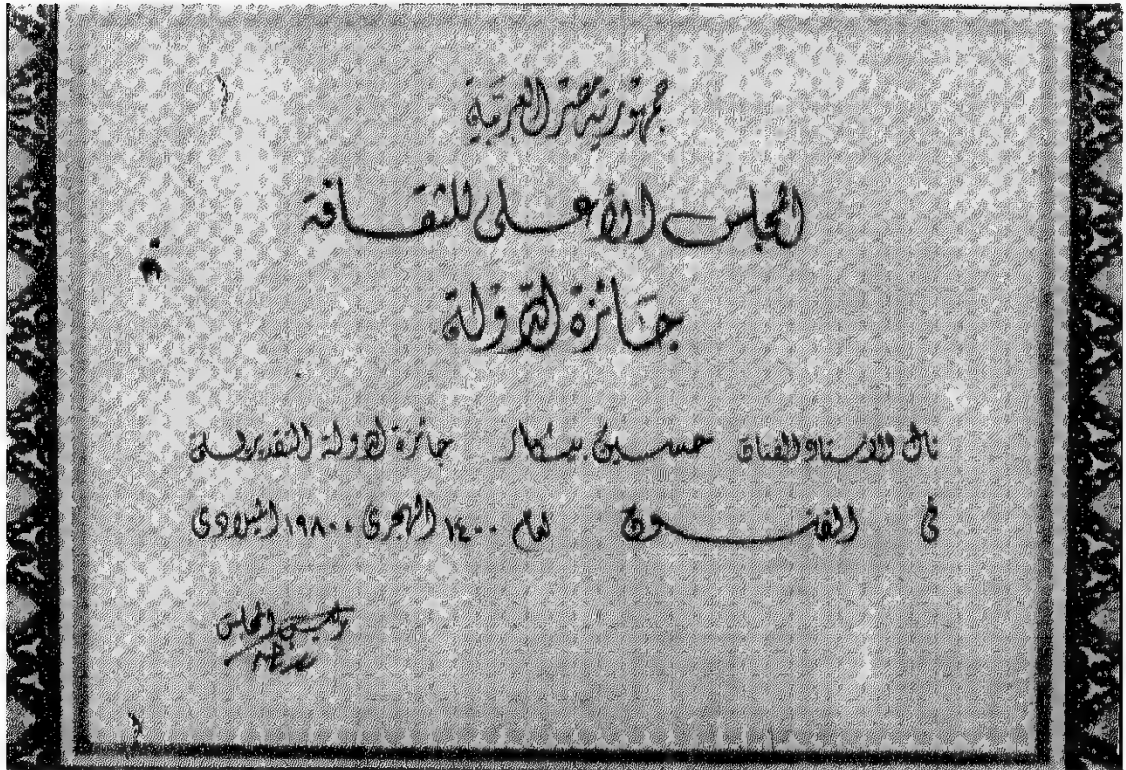 جمهورية مصر العربية
المجلس الأعلى للثقافة
جائزة الدولة
نال الاستاذ الفنان حسين بيكار جائزة الدولة التقديرية
فى الفنون لعام ١٤٠٠ الهجرى ١٩٨٠ الميلادى
رئيس المجلس